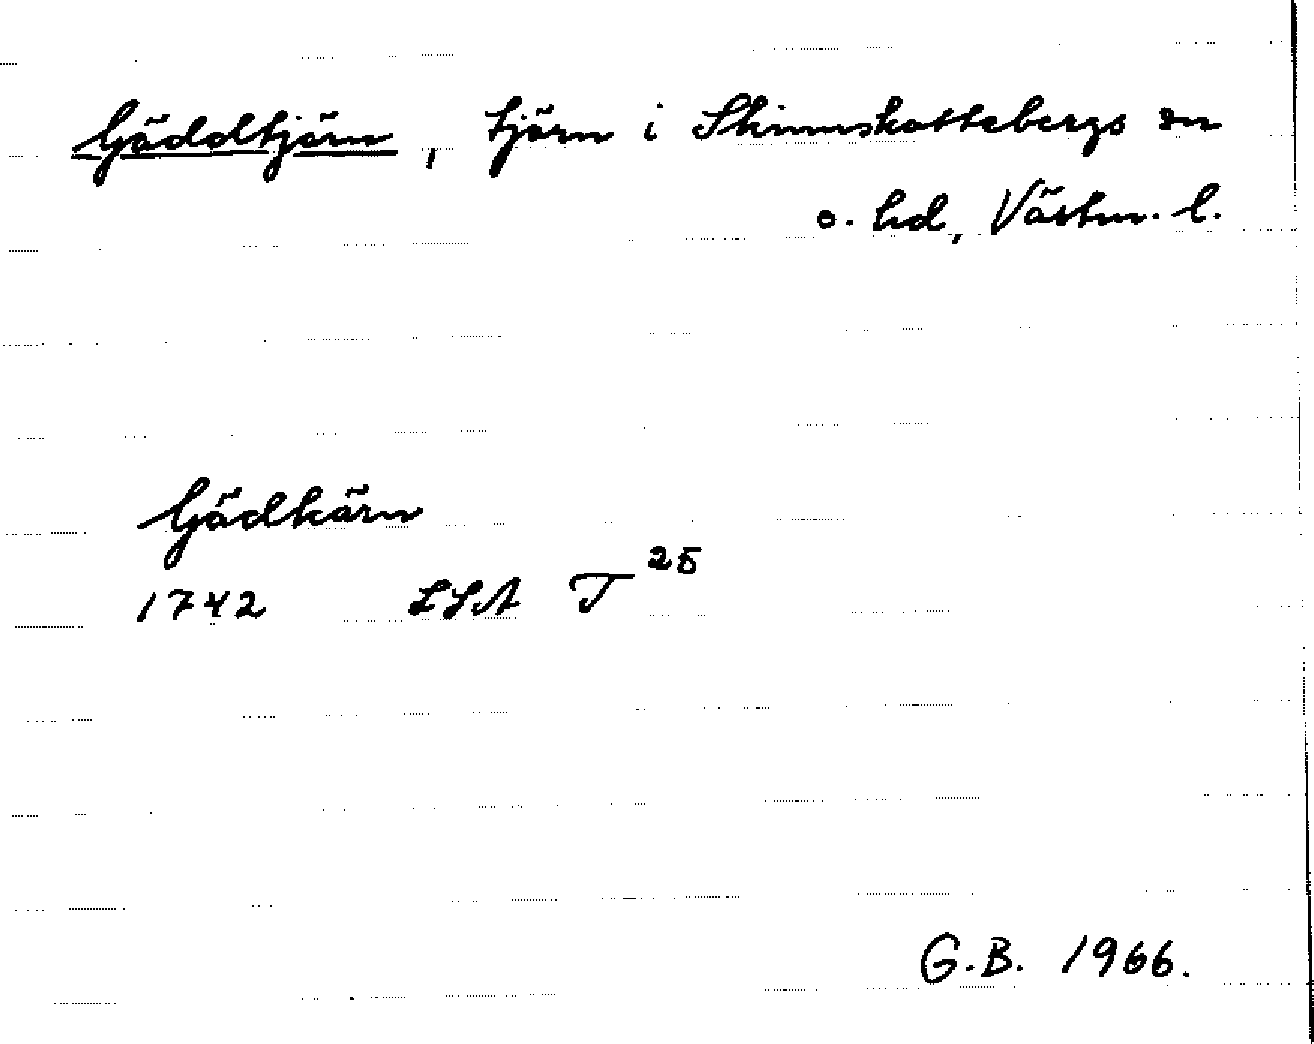 Gäddtjärn, tjärn i Skinnskattebergs sn
o. hd, Västm. l.
Gädkärn
1742 LSA T 25
G.B. 1966.